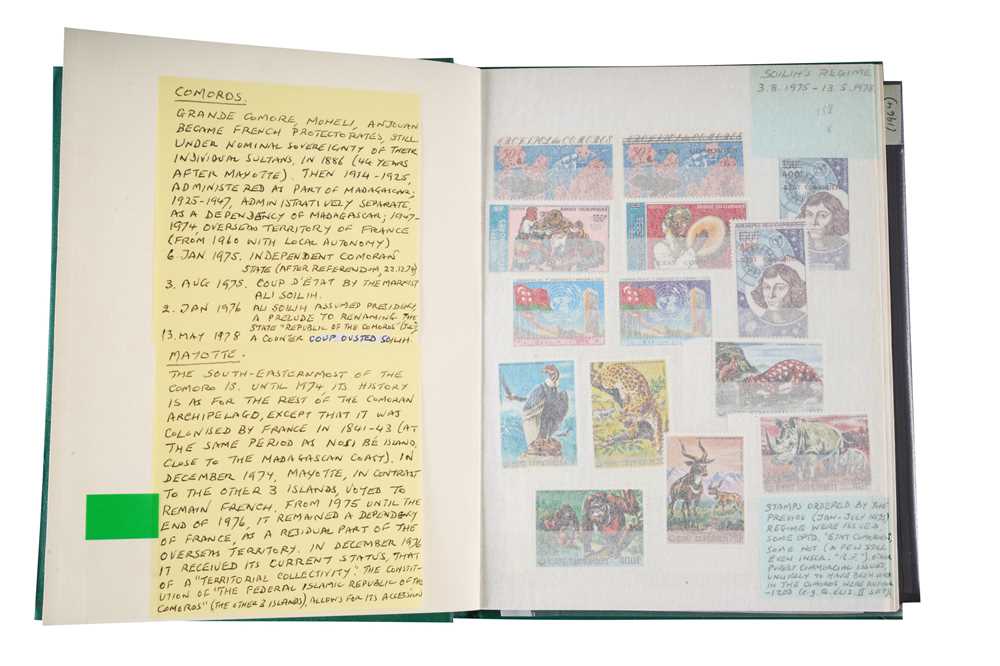 COMOROS.
GRANDE COMORE, MOHELI, ANJOUAN
BECAME FRENCH PROTECTORATES, STILL
UNDER NOMINAL SOVEREIGNTY OF THEIR
INDIVIDUAL SULTANS, IN 1886 (44 YEARS
AFTER MAYOTTE). THEN 1914-1925,
ADMINISTERED AS PART OF MADAGASCAR;
1925-1947, ADMINISTRATIVELY SEPARATE,
AS A DEPENDENCY OF MADAGASCAR; 1947-
1974, OVERSEAS TERRITORY OF FRANCE
(FROM 1960 WITH LOCAL AUTONOMY)
6 JAN 1975. INDEPENDENT COMORAN
STATE (AFTER REFERENDUM, 22.12.74)
3. AUG 1975. COUP D'ETAT BY THE MARXIST
ALI SOILIH.
2. JAN 1976 ALI SOILIH ASSUMED PRESIDENCY,
A PRELUDE TO RENAMING THE
STATE "REPUBLIC OF THE COMOROS"
13. MAY 1978 A COUNTER COUP OUSTED SOILIH.
MAYOTTE.
THE SOUTH-EASTERNMOST OF THE
COMORO IS. UNTIL 1974 ITS HISTORY
IS AS FOR THE REST OF THE COMORAN
ARCHIPELAGO, EXCEPT THAT IT WAS
COLONISED BY FRANCE IN 1841-43 (AT
THE SAME PERIOD AS NOSI BÉ ISLAND,
CLOSE TO THE MADAGASCAN COAST). IN
DECEMBER 1974, MAYOTTE, IN CONTRAST
TO THE OTHER 3 ISLANDS, VOTED TO
REMAIN FRENCH. FROM 1975 UNTIL THE
END OF 1976, IT REMAINED A DEPENDENCY
OF FRANCE, AS A RESIDUAL PART OF THE
OVERSEAS TERRITORY. IN DECEMBER 1976
IT RECEIVED ITS CURRENT STATUS, THAT
OF A "TERRITORIAL COLLECTIVITY". THE CONSTIT-
UTION OF "THE FEDERAL ISLAMIC REPUBLIC OF THE
COMOROS" (THE OTHER 3 ISLANDS), ALLOWS FOR ITS ACCESSION
SOILIH'S REGIME
3.8.1975-13.5.1978
158
8
(1964)
ARCHIPEL des COMORES
ARCHIPEL des COMORES
ETAT COMORIEN
400F
ETAT COMORIEN
ETAT COMORIEN
STAMPS ORDERED BY THE
PREVIOUS (JAN-JULY 1975)
REGIME WERE ISSUED,
SOME OPTD. "ETAT COMORIEN"
SOME NOT (A FEW STILL
EVEN INSCR. "R.F."). OTHER
PURELY COMMERCIAL ISSUES,
UNLIKELY TO HAVE BEEN USED
IN THE COMOROS WERE AUTHOR
-ISED (e.g. Q. ELIZ. II SET).